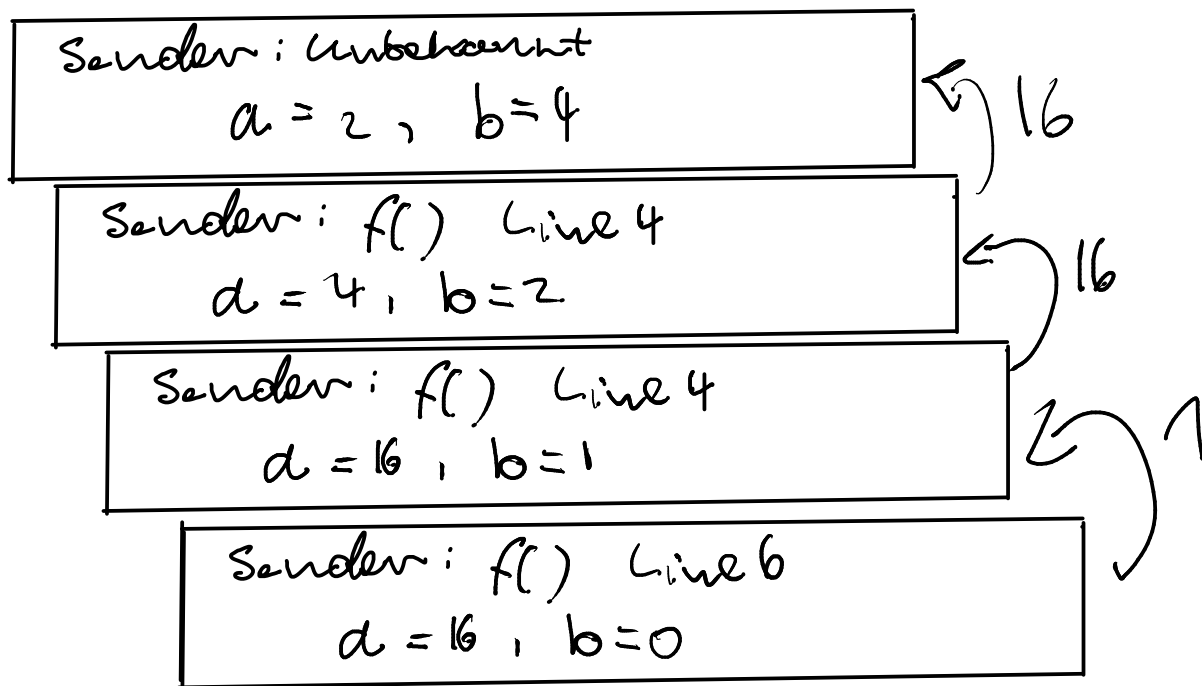 Sender: Unbekannt
a = 2, b = 4
16
Sender: f() Line 4
a = 4, b = 2
16
Sender: f() Line 4
a = 16, b = 1
1
Sender: f() Line 6
a = 16, b = 0